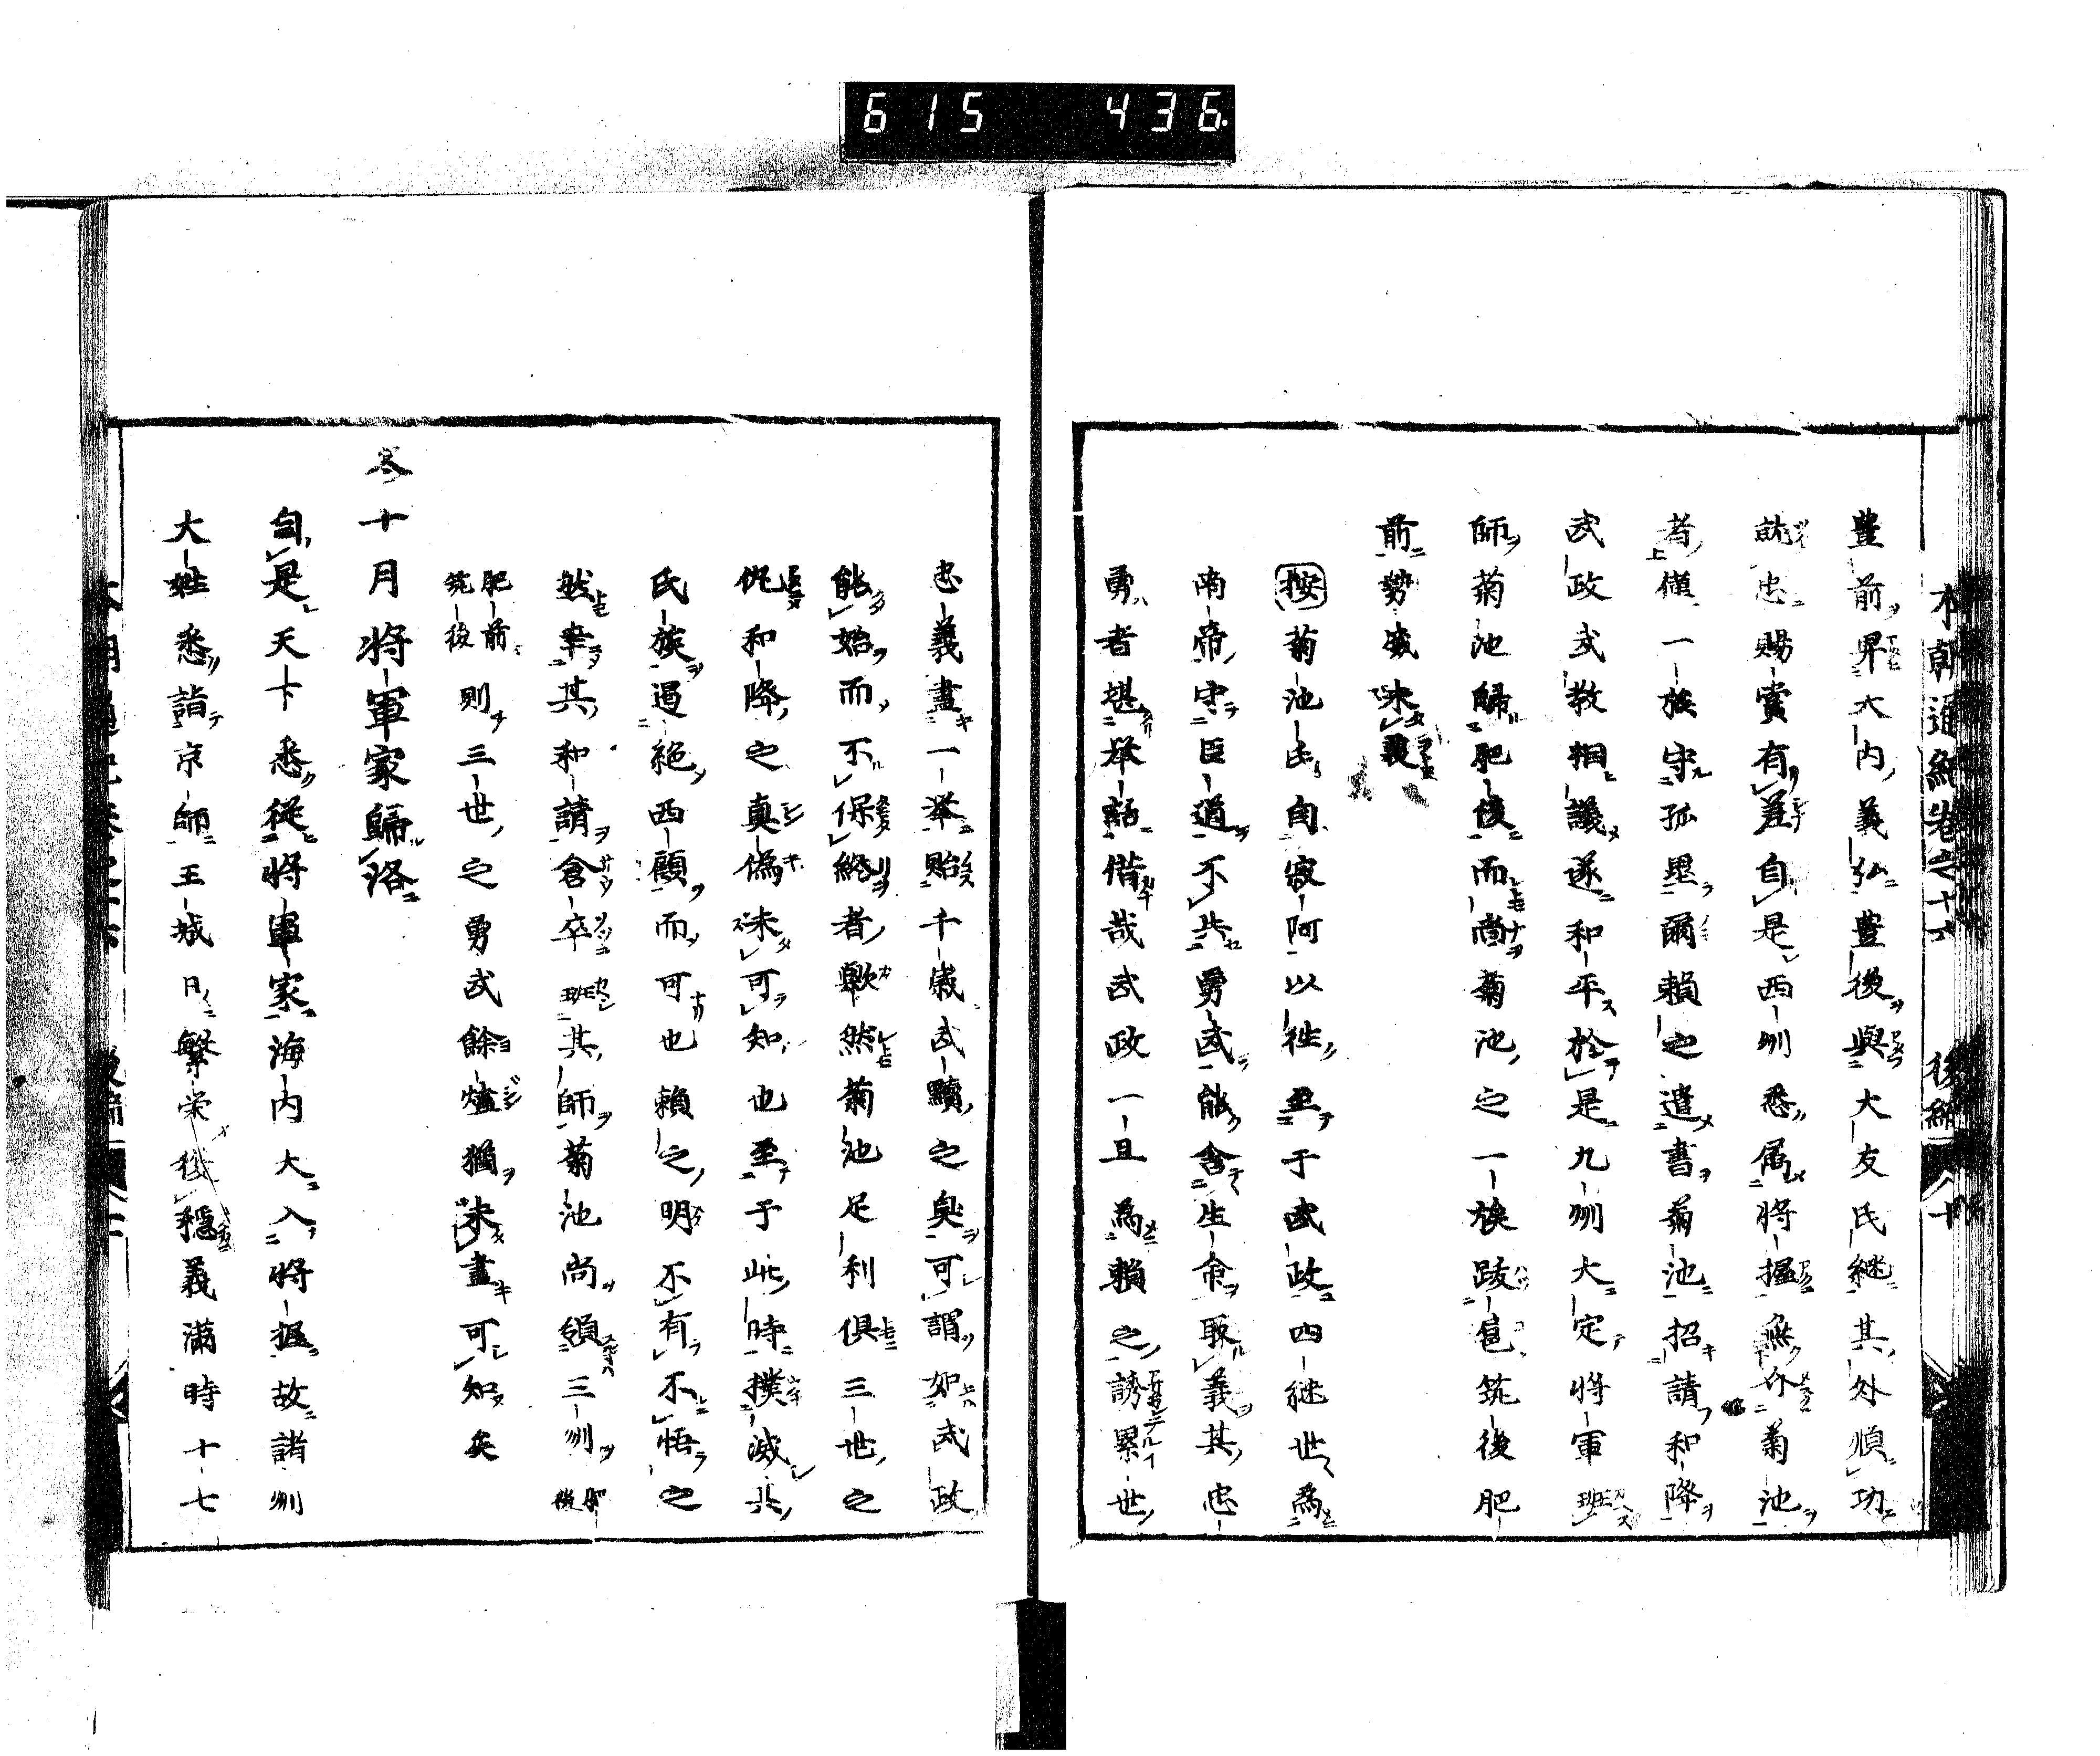 615 436
本朝通紀卷之十六 後編 十
豊前昇大内義弘豊後與大友氏継其外順功
就忠賜賞有差自是西州悉属將握無介菊池
者僅一族守孤壘爾頼之遣書菊池招請和降
武政武教相議遂和平於是九州大定将軍班
師菊池歸肥後而尚菊池之一族跋扈筑後肥
前勢威未衰
按菊池氏自寂阿以徃至于武政四継世為
南帝守臣道不共勇武能舎生命取義其忠
勇者堪挙話偕哉武政一旦為頼之誘累世
忠義盡一挙貽千歳武黷之臭可謂如武政
能始而不保終者歟然菊池足利倶三世之
仇和降之真偽未可知也至于此時撲滅其
氏族過絶西顧而可也頼之明不有不悟之
然幸其和請倉卒班其師菊池尚領三州肥後
肥前筑後則三世之勇武餘燼猶未盡可知矣
冬十月將軍家歸洛
自是天下悉従將軍家海内大入將握故諸州
大姓悉詣京師王城日繁栄後穏義満時十七